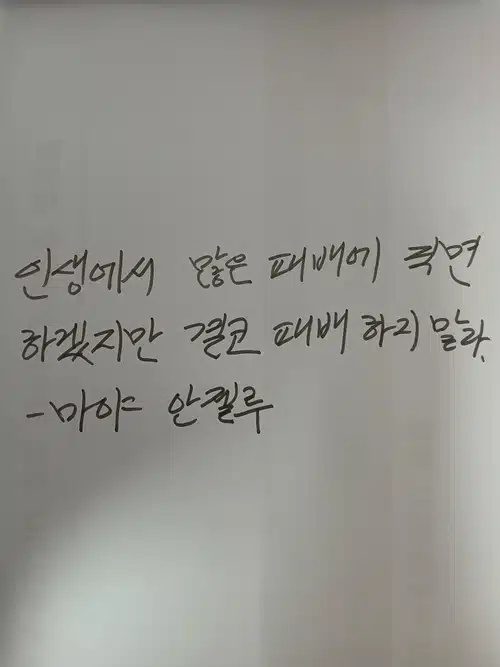 인생에서 많은 패배에 직면
하겠지만 결코 패배 하지 말라.
-마야 안젤루